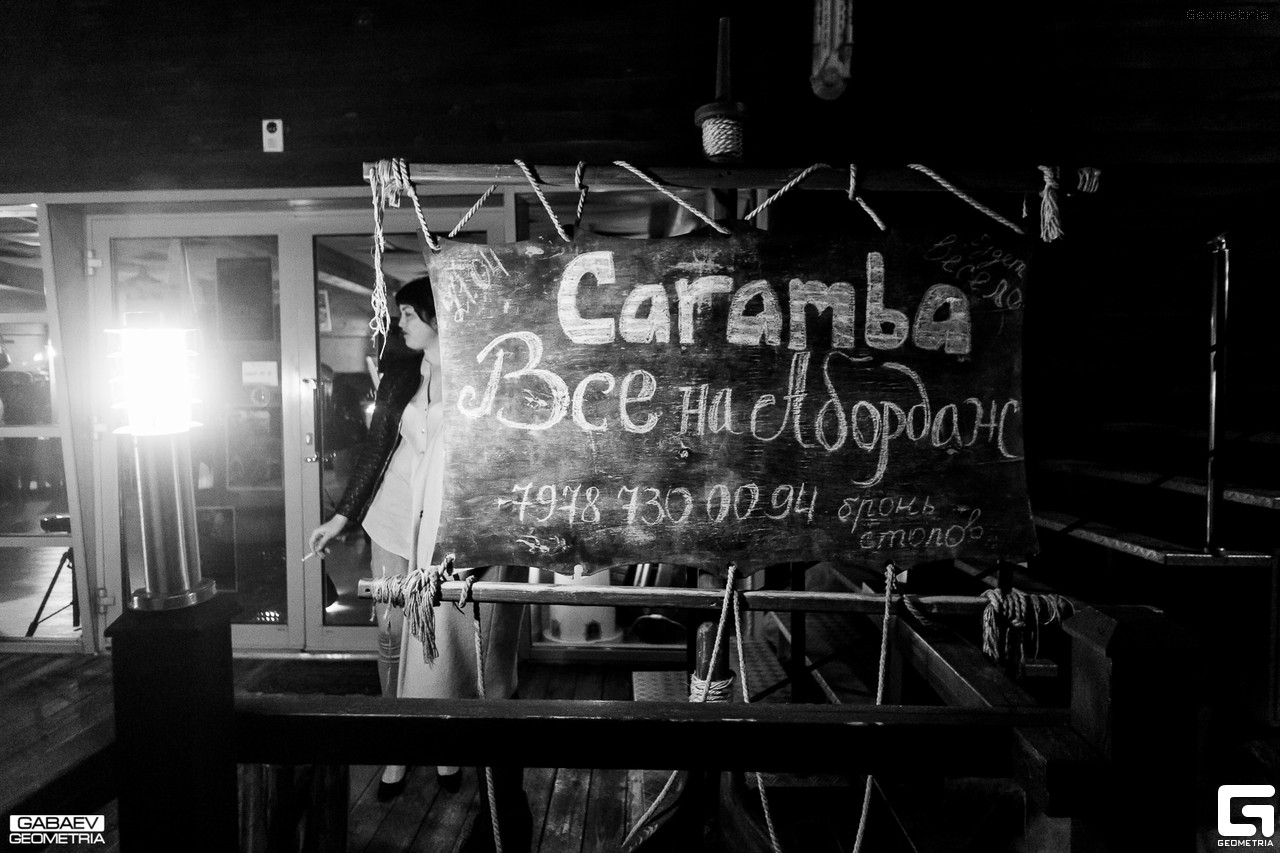 Geometria
Caramba
Будет
весело
Все на Абордаж
7978 730 00 94 бронь
столов
GABAEV
GEOMETRIA
GEOMETRIA